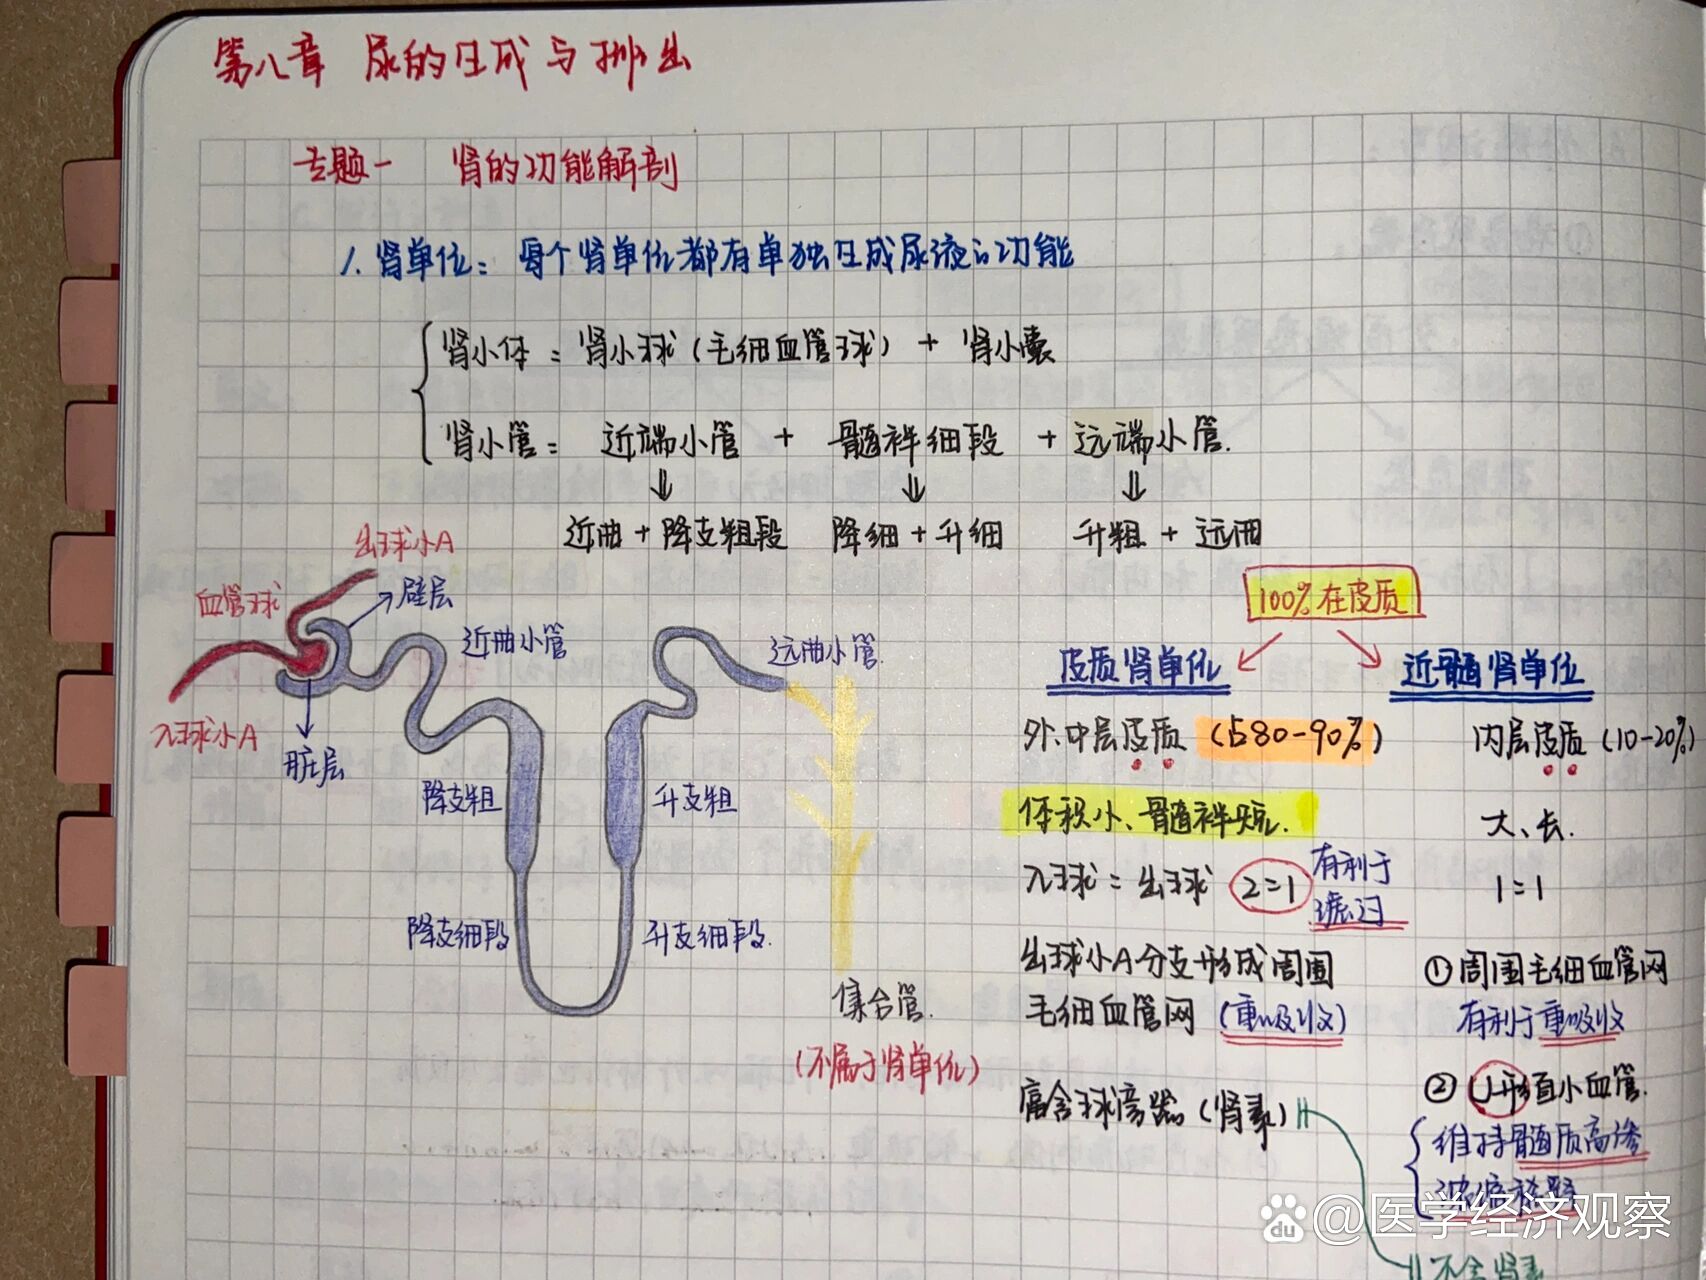 第八章 尿的生成与排出
专题一 肾的功能解剖
1. 肾单位: 每个肾单位都有单独生成尿液的功能
肾小体 = 肾小球(毛细血管球) + 肾小囊
肾小管 = 近端小管 + 髓袢细段 + 远端小管.
⇓ ⇓ ⇓
近曲 + 降支粗段 降细 + 升细 升粗 + 远曲
出球小A
血管球
壁层
近曲小管
远曲小管
入球小A
脏层
降支粗
升支粗
降支细段
升支细段.
集合管.
(不属于肾单位)
100%在皮质
皮质肾单位
近髓肾单位
外.中层皮质 (占80-90%)
内层皮质 (10-20%)
体积小、髓袢短.
大、长.
入球 = 出球 2=1 有利于
滤过
1=1
出球小A分支形成周围
毛细血管网 (重吸收)
①周围毛细血管网
有利于重吸收
富含球旁器 (肾素)
② U形直小血管.
维持髓质高渗
浓缩稀释
不含肾素
@医学经济观察